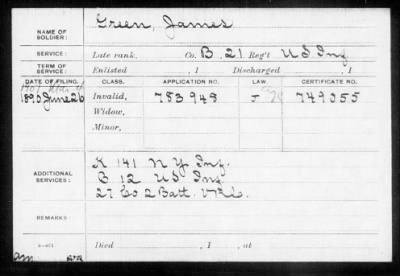 NAME OF SOLDIER: Green, James
SERVICE: Late rank, Co. B, 21 Reg't U S Inf.
TERM OF SERVICE: Enlisted , 1 Discharged , 1
DATE OF FILING. CLASS. APPLICATION NO. LAW. CERTIFICATE NO.
1890 June 26 Invalid, 783948 J 749055
Widow,
Minor,
ADDITIONAL SERVICES: K 141 N Y Inf.
B 12 US Inf.
27 Co 2 Batt. V.R.C.
REMARKS:
Died , 1 , at